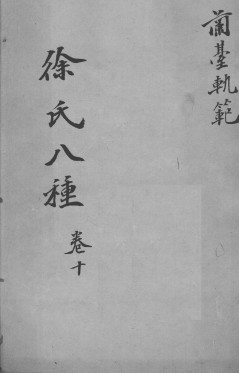 蘭臺軌範
徐氏八種
卷十